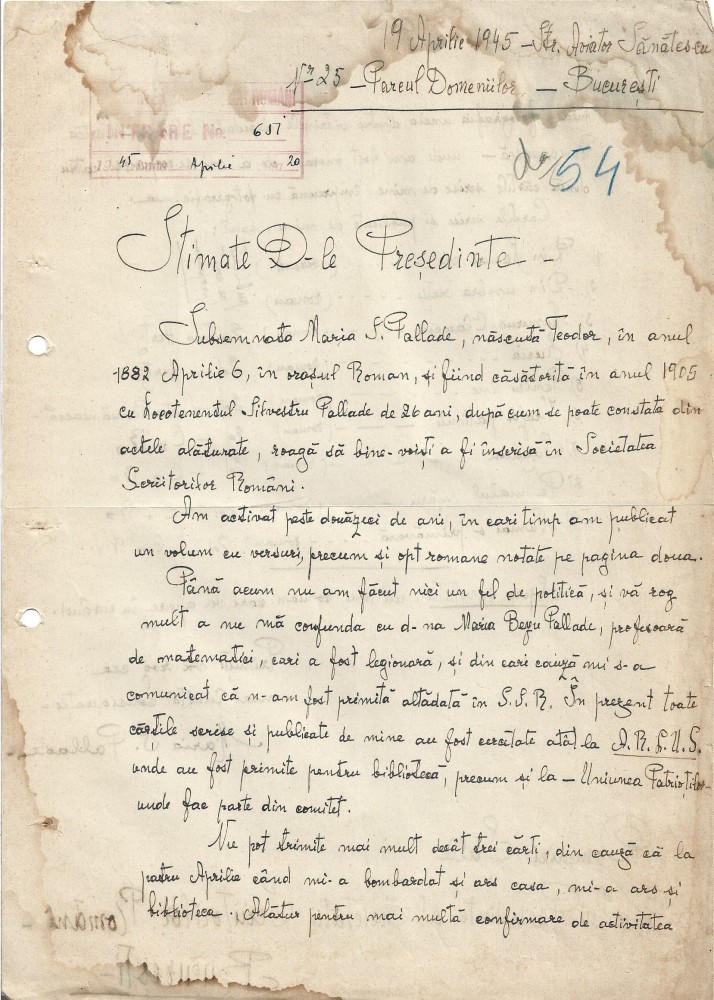 19 Aprilie 1945 – Str. Aviator Sănătescu
Nr 25 – Parcul Domeniilor – București
ROMÂNI
INTRARE No. 651
1945 Aprilie 20
54
Stimate D-le Președinte –
Subsemnata Maria S. Pallade, născută Teodor, în anul
1882 Aprilie 6, în orașul Roman, și fiind căsătorită în anul 1905
cu Locotenentul Silvestru Pallade de 26 ani, după cum se poate constata din
actele alăturate, roagă să bine-voiști a fi înscrisă în Societatea
Scriitorilor Români.
Am activat peste douăzeci de ani, în cari timp am publicat
un volum cu versuri, precum și opt romane notate pe pagina doua.
Până acum nu am făcut nici un fel de politică, și vă rog
mult a nu mă confunda cu d-na Maria Beyu Pallade, profesoară
de matematici, cari a fost legionară, și din cari cauză mi s-a
comunicat că n-am fost primită altădată în S.S.R. În prezent toate
cărțile scrise și publicate de mine au fost cercitate atât la A.R.L.U.S.
unde au fost primite pentru bibliotecă, precum și la – Uniunea Patrioților–
unde fac parte din comitet.
Nu pot trimite mai mult decât trei cărți, din cauză că la
patru Aprilie când mi-a bombardat și ars casa, mi-a ars și
biblioteca. Alătur pentru mai multă confirmare de activitatea